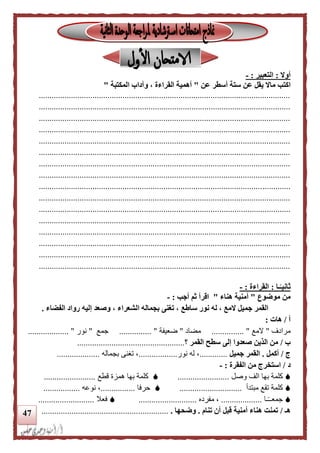 نماذج امتحانات استرشادية لمراجعة الوحدة الثانية
الامتحان الأول
أولا : التعبير : -
اكتب مالا يقل عن ستة أسطر عن " أهمية القراءة ، وآداب المكتبة "
ثانيـًا : القراءة : -
من موضوع " أمنية هناء " اقرأ ثم أجب : -
القمر جميل لامع ، له نور ساطع ، تغنى بجماله الشعراء ، وصعد إليه رواد الفضاء .
أ / هات :
مرادف " لامع " ............... مضاد " ضعيفة " ............... جمع " نور " ...................
ب / من الذين صعدوا إلى سطح القمر ؟..................................................
ج / أكمل . القمر جميل ............، له نور..................، تغنى بجماله ....................
د / استخرج من الفقرة : -
كلمة بها ألف وصل ........................ كلمة بها همزة قطع ........................
كلمة تقع مبتدأ ............................ حرفا ................، نوعه .................
جمعـًـا ................... ، مفرده ................... فعلا .......................................
هـ / تمنت هناء أمنية قبل أن تنام . وضحها . ...........................................................
47